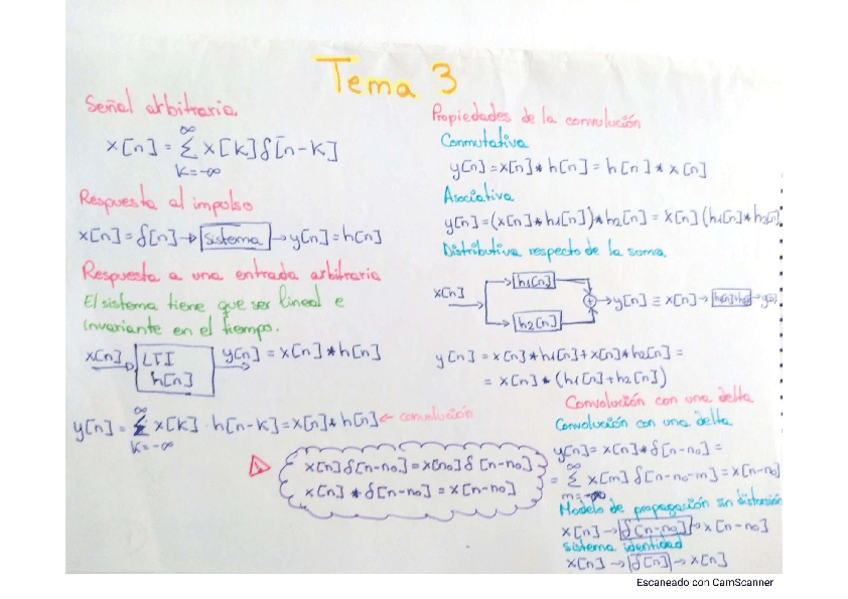 Tema 3
Señal arbitraria
x[n] = ∞ Σ k=-∞ x[k] δ[n-k]
Respuesta al impulso
x[n] = δ[n] → sistema → y[n] = h[n]
Respuesta a una entrada arbitraria
El sistema tiene que ser lineal e
invariante en el tiempo.
x[n] → LTI h[n] → y[n] = x[n] * h[n]
y[n] = ∞ Σ k=-∞ x[k] · h[n-k] = x[n] * h[n] ← convolución
x[n] δ[n-n₀] = x[n₀] δ[n-n₀]
x[n] * δ[n-n₀] = x[n-n₀]
Propiedades de la convolución
Conmutativa
y[n] = x[n] * h[n] = h[n] * x[n]
Asociativa
y[n] = (x[n] * h1[n]) * h2[n] = x[n] (h1[n] * h2[n])
Distributiva respecto de la suma
x[n] → h1[n] h2[n] + → y[n] ≡ x[n] → h1[n]+h2 → y[n]
y[n] = x[n] * h1[n] + x[n] * h2[n] =
= x[n] * (h1[n] + h2[n])
Convolución con una delta
Convolución con una delta
y[n] = x[n] * δ[n-n₀] =
= ∞ Σ m=-∞ x[m] δ[n-n₀-m] = x[n-n₀]
Modelo de propagación sin distorsión
x[n] → δ[n-n₀] → x[n-n₀]
sistema identidad
x[n] → δ[n] → x[n]
Escaneado con CamScanner